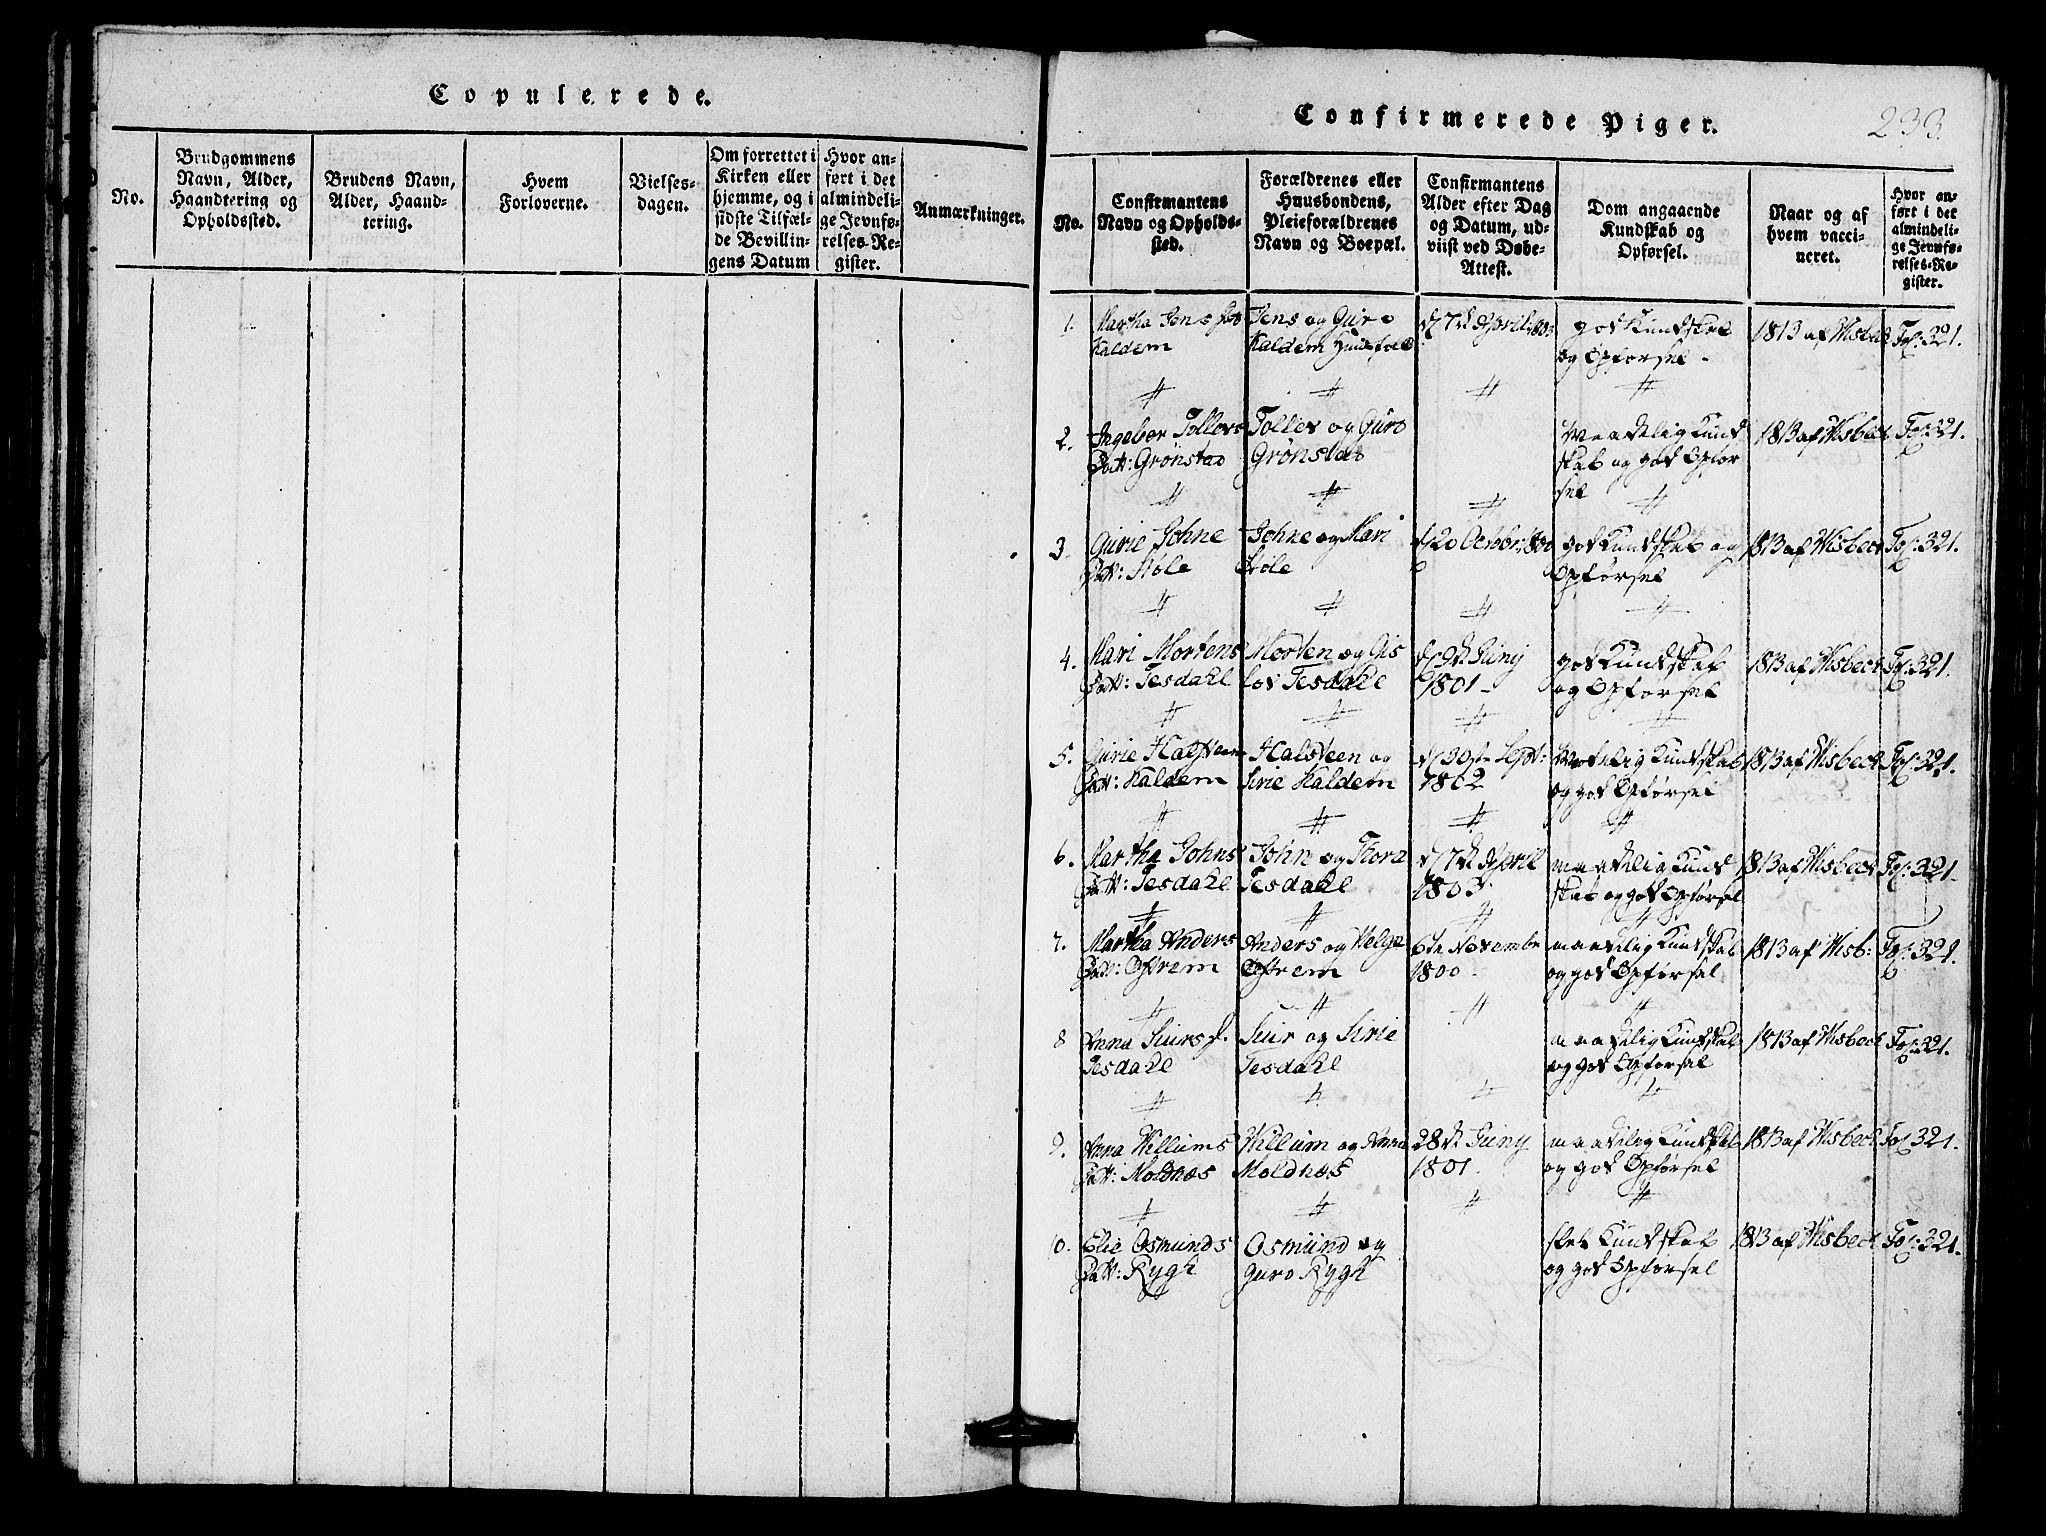 Copulerede.
No.
Brudgommens
Navn, Alder,
Haandtering og
Opholdssted.
Brudens Navn,
Alder, Haand-
tering.
Hvem
Forloverne.
Vielses-
dagen.
Om forrettet i
Kirken eller
hjemme, og i
sidste Tilfæl-
de Bevillin-
gens Datum
Hvor an-
ført i det
almindeli-
ge Jevnfø-
relses-Re-
gister.
Anmærkninger.
Confirmerede Piger.
233.
No.
Confirmantens
Navn og Opholds-
sted.
Forældrenes eller
Huusbondens,
Pleieforældrenes
Navn og Boepæl.
Confirmantens
Alder efter Dag
og Datum, ud-
viist ved Døbe-
Attest.
Dom angaaende
Kundskab og
Opførsel.
Naar og af
hvem vacci-
neret.
Hvor an-
ført i det
almindeli-
ge Jevnfø-
relses-Re-
gister.
1.
Martha Jens
Kaldem
Jens og Guro
Kaldem
April
god Kundskab
og Opførsel -
1813 af Wisbech
Fol: 321.
2.
Ingebor Tollevs
Datt: Grønstad
Tollev og Guro
Grønstad
Maadelig Kund
skab og god Opfør
sel
1813 af Wisbech
Fol: 321.
3.
Gurie Johne
Datt: Stole
Johne og Mari
Stole
20 October 1800
god Kundskab og
Opførsel
1813 af Wisbech
Fol: 321.
4.
Mari Mortens
Datt: Tesdahl
Morten og Gis
lov Tesdahl
Juny
1801 -
god Kundskab
og Opførsel
1813 af Wisbech
Fol: 321.
5.
Gurie Halsteen
Datt: Kaldem
Halsteen og
Sirie Kaldem
30te Sept:
1802
Maadelig Kundskab
og god Opførsel
1813 af Wisbech
Fol: 321.
6.
Martha Johns
Datt: Tesdahl
John og Thora
Tesdahl
April
1803.
maadelig Kund
skab og god Opførsel
1813 af Wisbech
Fol: 321.
7.
Martha Anders
Datt: Oftrem
Anders og Helge
Oftrem
6te Novembr
1800.
maadelig Kundskab
og god Opførsel
1813 af Wisb:
Fol: 321.
8
Anna Siurs D.
Tesdahl
Siur og Sirie
Tesdahl
maadelig Kundskab
og god Opførsel
1813 af Wisbech
Fol: 321.
9.
Anna Willums
Datt: Moldnæs
Willum og Anna
Moldnæs
28de Juny
1801.
maadelig Kundskab
og god Opførsel
1813 af Wisbech
Fol: 321.
10.
Elie Osmunds
Datt: Rygh
Osmund og
Guro Rygh
slet Kundskab
og god Opførsel
1813 af Wisbech
Fol: 321.